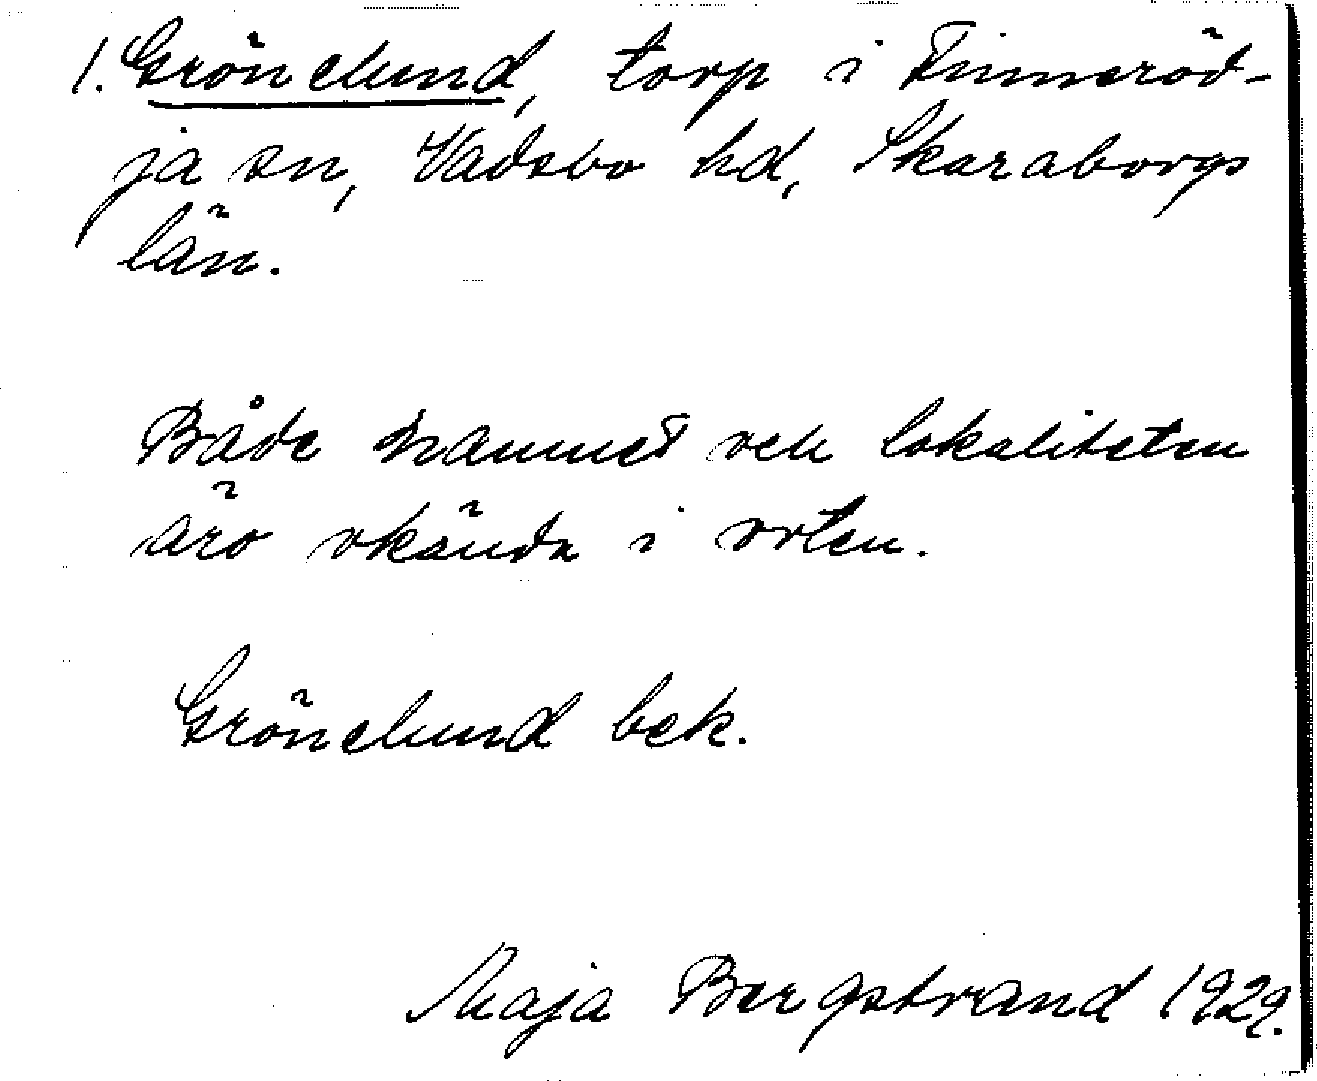 1. Grönelund, torp i Finneröd-
ja sn, Vadsbo hd, Skaraborgs
län.
Både namnet och lokaliteten
äro okända i orten.
Grönelund bek.
Maja Bergstrand 1929.